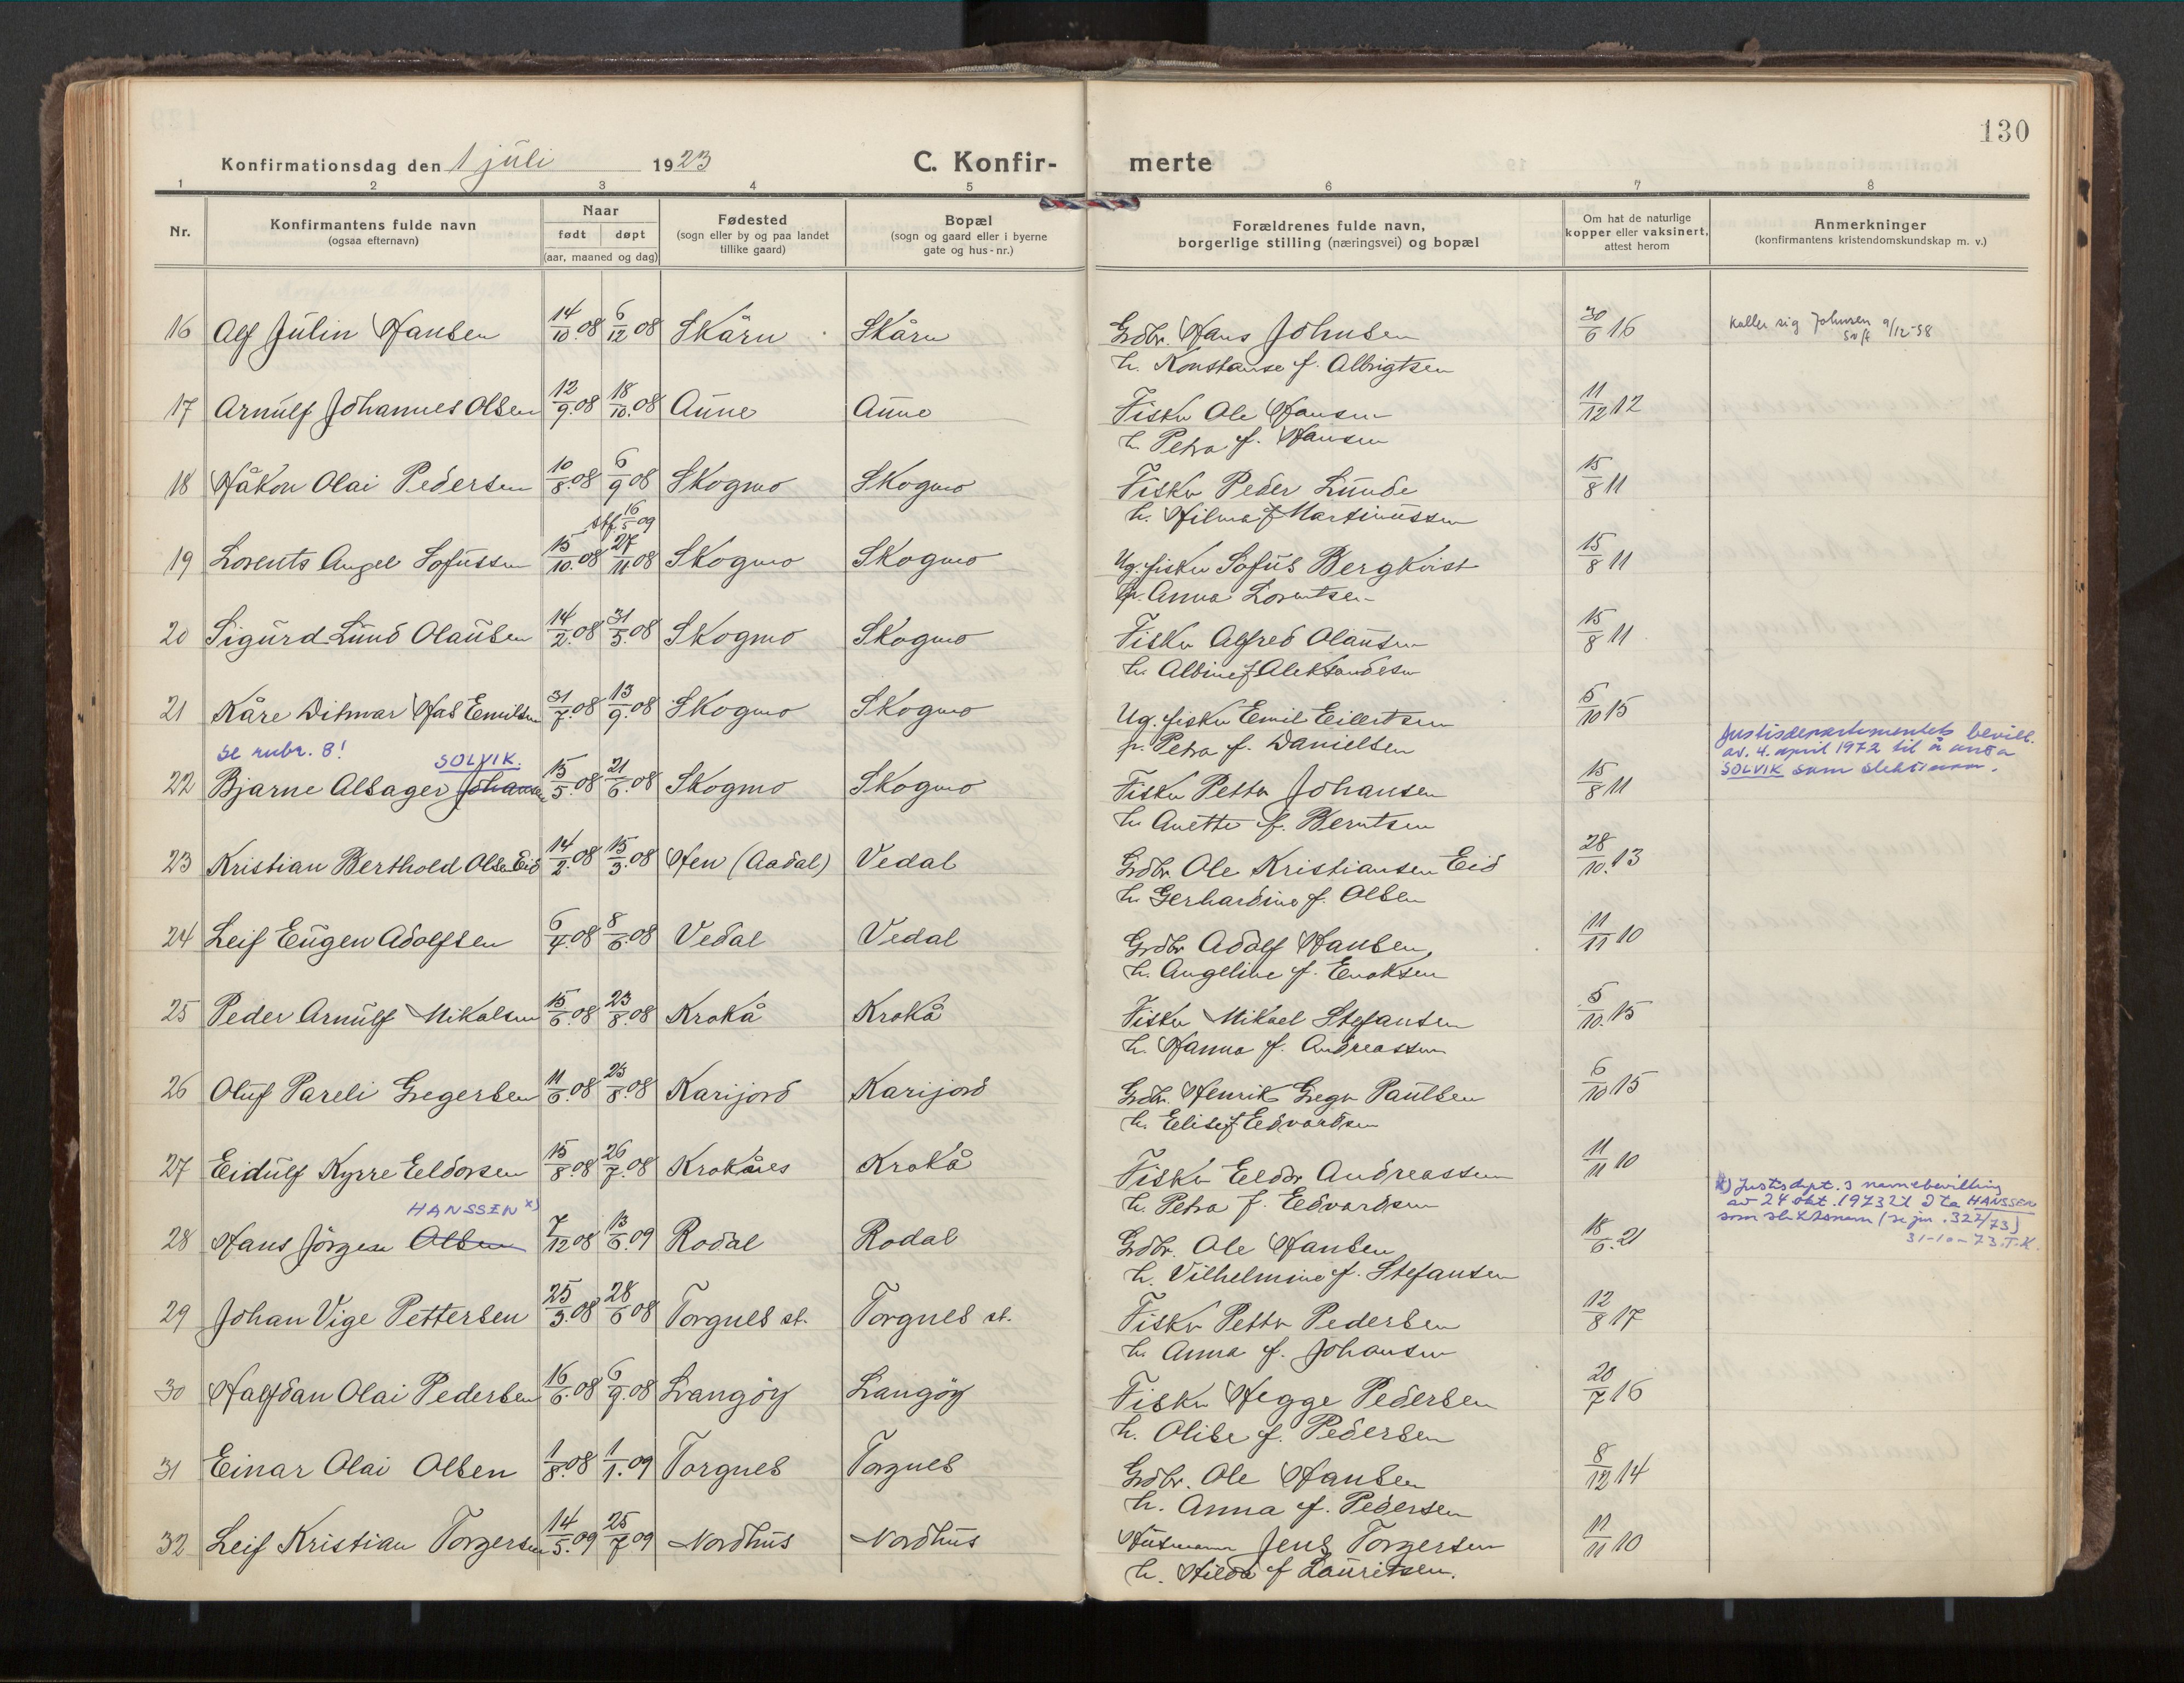 130
Konfirmationsdag den 1 juli 1923 C. Konfir- merte
1 2 3 4 5 6 7 8
Nr. Konfirmantens fulde navn (ogsaa efternavn) Naar født døpt (aar, maaned og dag) Fødested (sogn eller by og paa landet tillike gaard) Bopæl (sogn og gaard eller i byerne gate og hus-nr.) Forældrenes fulde navn, borgerlige stilling (næringsvei) og bopæl Om hat de naturlige kopper eller vaksinert, attest herom Anmerkninger (konfirmantens kristendomskundskap m. v.)
16 Alf Julin Hansen 14/10.08 6/12 08 Skårn Skårn Grdbr. Hans Johnsen 30/6 16 Kaller sig Johnsen 9/12-58
h. Konstanse f. Albrigtsen
17 Arnulf Johannes Olsen 12/9.08 18/10.08 Aune Aune Fisker Ole Hansen 11/12 12
h. Petra f. Hansen
18 Håkon Olai Pedersen 10/8.08 6/9 08 Skogmo Skogmo Fisker Peder Lunde 15/8 11
h. Hilma f Martinussen
stf 16/5 09
19 Lorents Angel Sofussen 15/10.08 27/11 08 Skogmo Skogmo Ug. fisker Sofus Bergkvist 15/8 11
p. Anna Lorentsen
20 Sigurd Lund Olausen 14/2.08 31/5.08 Skogmo Skogmo Fisker Alfred Olausen 15/8 11
h. Albine f Aleksandersen
21 Kåre Ditmar Has Emilsen 31/7.08 13/9.08 Skogmo Skogmo Ug. fisker Emil Eilertsen 5/10 15
p. Petra f. Danielsen
se rubr. 8! SOLVIK. Justisdepartementets bevill.
av. 4. april 1972 til å anta
SOLVIK som slektsnavn.
22 Bjarne Alsager Johansen 15/5.08 21/6.08 Skogmo Skogmo Fisker Petter Johansen 15/8 11
h. Anette f. Berntsen
23 Kristian Berthold Olsen Eid 14/2.08 15/3.08 Hen (Aadal) Vedal Grdbr. Ole Kristiansen Eid 28/10.13
h. Gerhardine f. Olsen
24 Leif Eugen Adolfsen 6/4.08 8/6.08 Vedal Vedal Grdbr Adolf Hansen 11/11 10
h. Angeline f. Enoksen
25 Peder Arnulf Mikalsen 15/6.08 23/8.08 Krokå Krokå Fisker Mikael Stefansen 5/10.15
h. Hanna f. Andreassen
26 Oluf Pareli Gregersen 11/6.08 23/8.08 Karijord Karijord Grdbr. Henrik Greger Paulsen 6/10 15
h. Elise f Edvardsen
27 Eidulf Kyrre Eldorsen 15/8.08 26/7.08 Kroknes Krokå Fisker Eldor Andreassen 11/11 10
h. Petra f. Edvardsen
HANSSEN x) x) Justisdept.s navnebevilling
av 24 okt. 1973 til å ta HANSSEN
som slektsnavn (se jnr. 322/73)
31-10-73. T.K.
28 Hans Jörgen Olsen 7/12 08 13/6.09 Rodal Rodal Grdbr. Ole Hansen 18/6.21
h. Vilhelmine f. Stefansen
29 Johan Vige Pettersen 25/3.08 28/6 08 Torgnes st. Torgnes st. Fisker Petter Pedersen 12/8 17
h. Anna f. Johansen
30 Halfdan Olai Pedersen 16/6.08 6/9.08 Langöy Langöy Fisker Hegge Pedersen 20/7 16
h. Olise f. Pedersen
31 Einar Olai Olsen 1/8.08 1/1.09 Torgnes Torgnes Grdbr. Ole Hansen 8/12 14
h. Anna f. Pedersen
32 Leif Kristian Torgersen 14/5.09 25/7 09 Nordhus Nordhus Husmann Jens Torgersen 11/11 10
h. Hilda f Lauritsen.